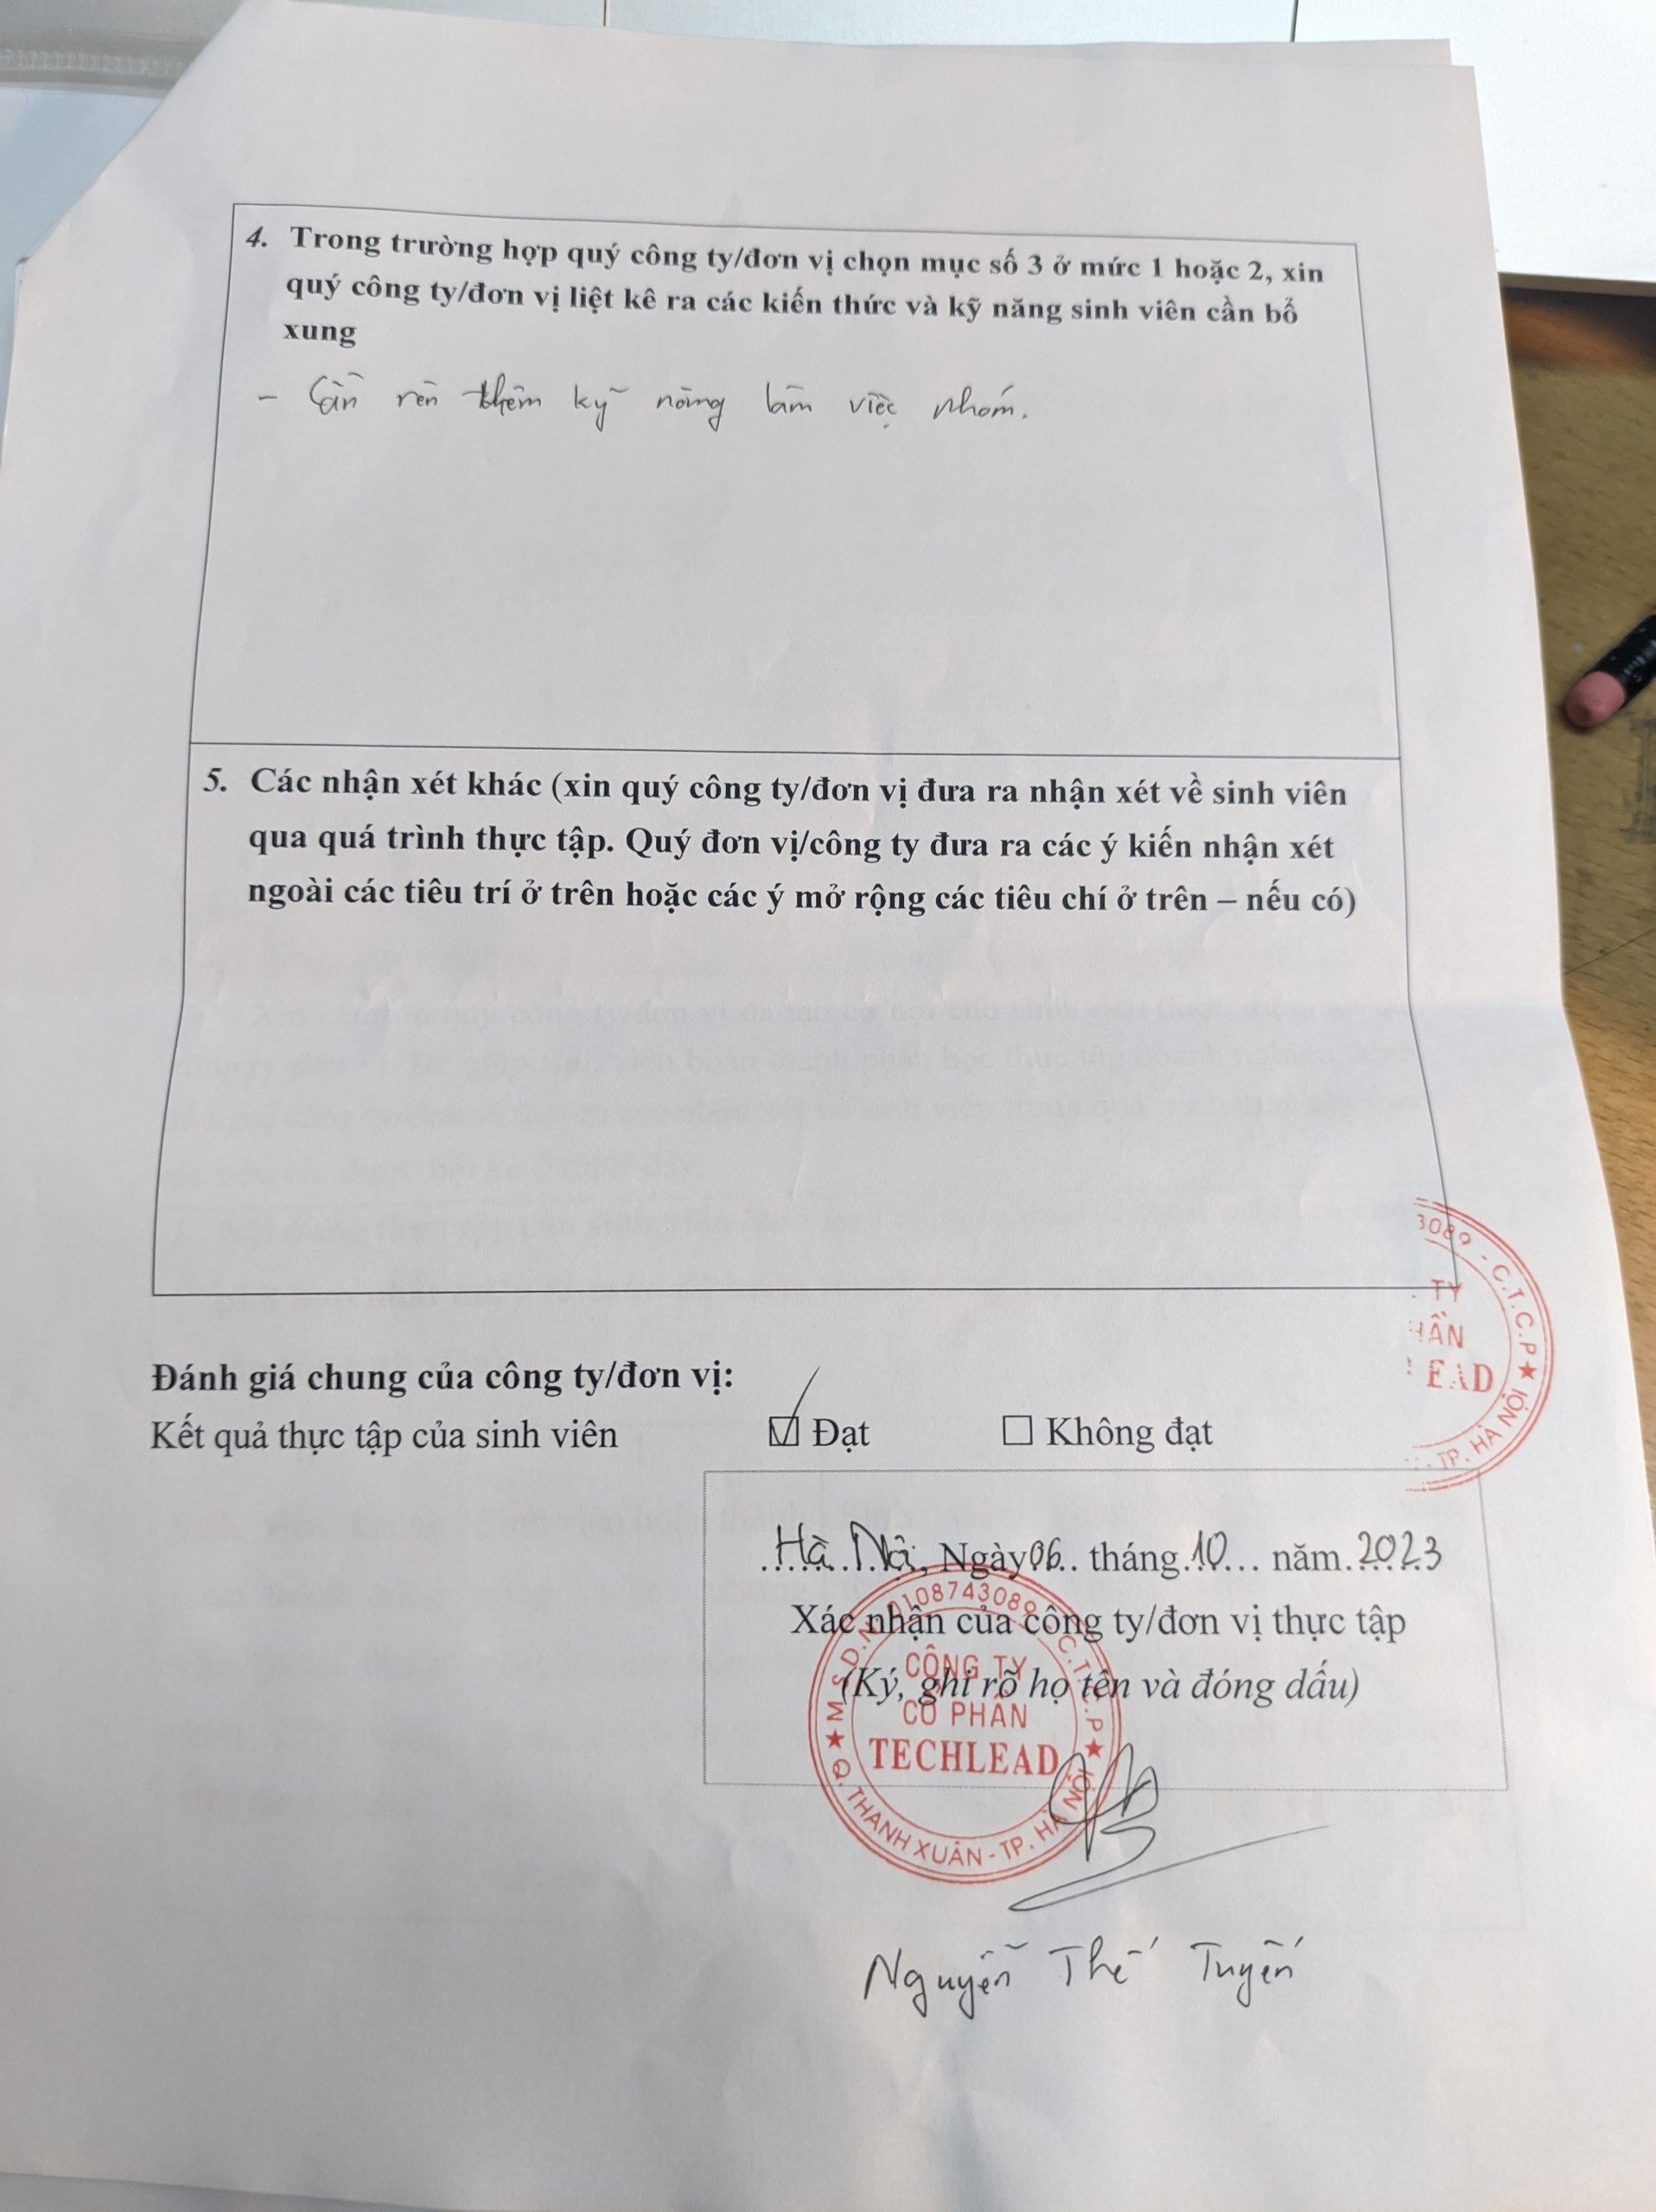 4. Trong trường hợp quý công ty/đơn vị chọn mục số 3 ở mức 1 hoặc 2, xin
quý công ty/đơn vị liệt kê ra các kiến thức và kỹ năng sinh viên cần bổ
xung
- Cần rèn thêm kỹ năng làm việc nhóm.
5. Các nhận xét khác (xin quý công ty/đơn vị đưa ra nhận xét về sinh viên
qua quá trình thực tập. Quý đơn vị/công ty đưa ra các ý kiến nhận xét
ngoài các tiêu trí ở trên hoặc các ý mở rộng các tiêu chí ở trên – nếu có)
3089 - C.T.C.P
TY
HẦN
EAD
TP. HÀ NỘI
Đánh giá chung của công ty/đơn vị:
Kết quả thực tập của sinh viên Đạt Không đạt
Hà Nội, Ngày 06 tháng 10 năm 2023
Xác nhận của công ty/đơn vị thực tập
(Ký, ghi rõ họ tên và đóng dấu)
M.S.D.N: 0108743089 - C.T.C.P
CÔNG TY
CỔ PHẦN
TECHLEAD
Q. THANH XUÂN - TP. HÀ NỘI
Nguyễn Thế Tuyến